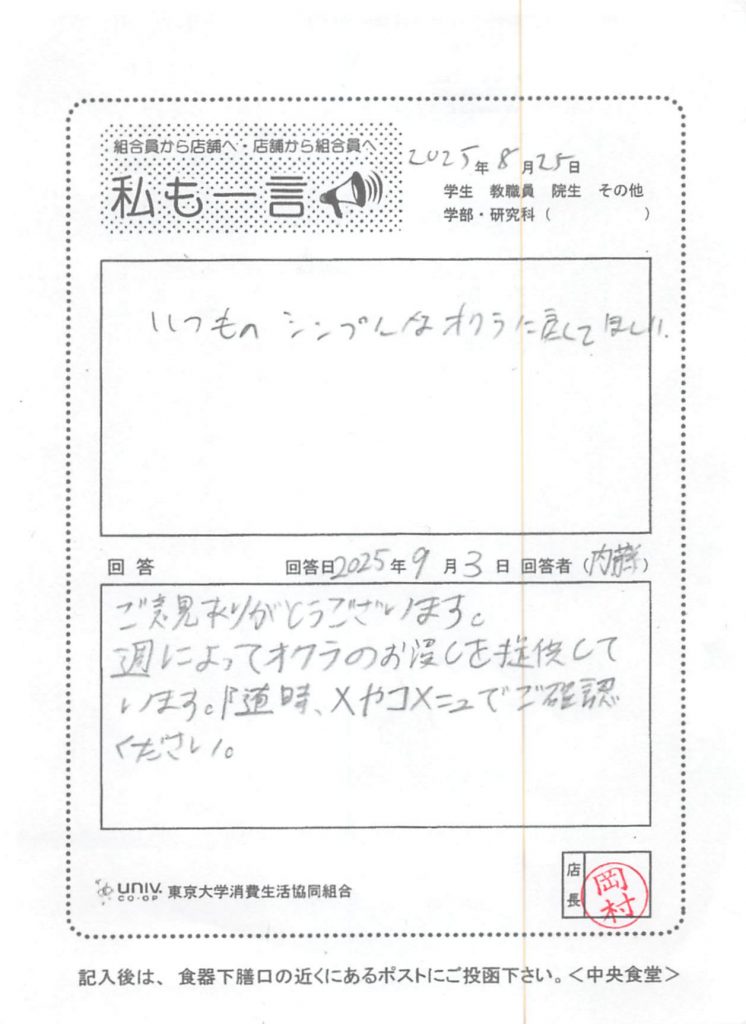 組合員から店舗へ・店舗から組合員へ
私も一言
2025年8月25日
学生 教職員 院生 その他
学部・研究科（ ）
いつもの シンプルなオクラに戻してほしい.
回答 回答日2025年9月3日 回答者（内藤）
ご意見ありがとうございます。
週によってオクラのお浸しを提供して
います。随時、Xやコメニュでご確認
ください。
UNIV. CO-OP 東京大学消費生活協同組合
店長
岡村
記入後は、食器下膳口の近くにあるポストにご投函下さい。＜中央食堂＞